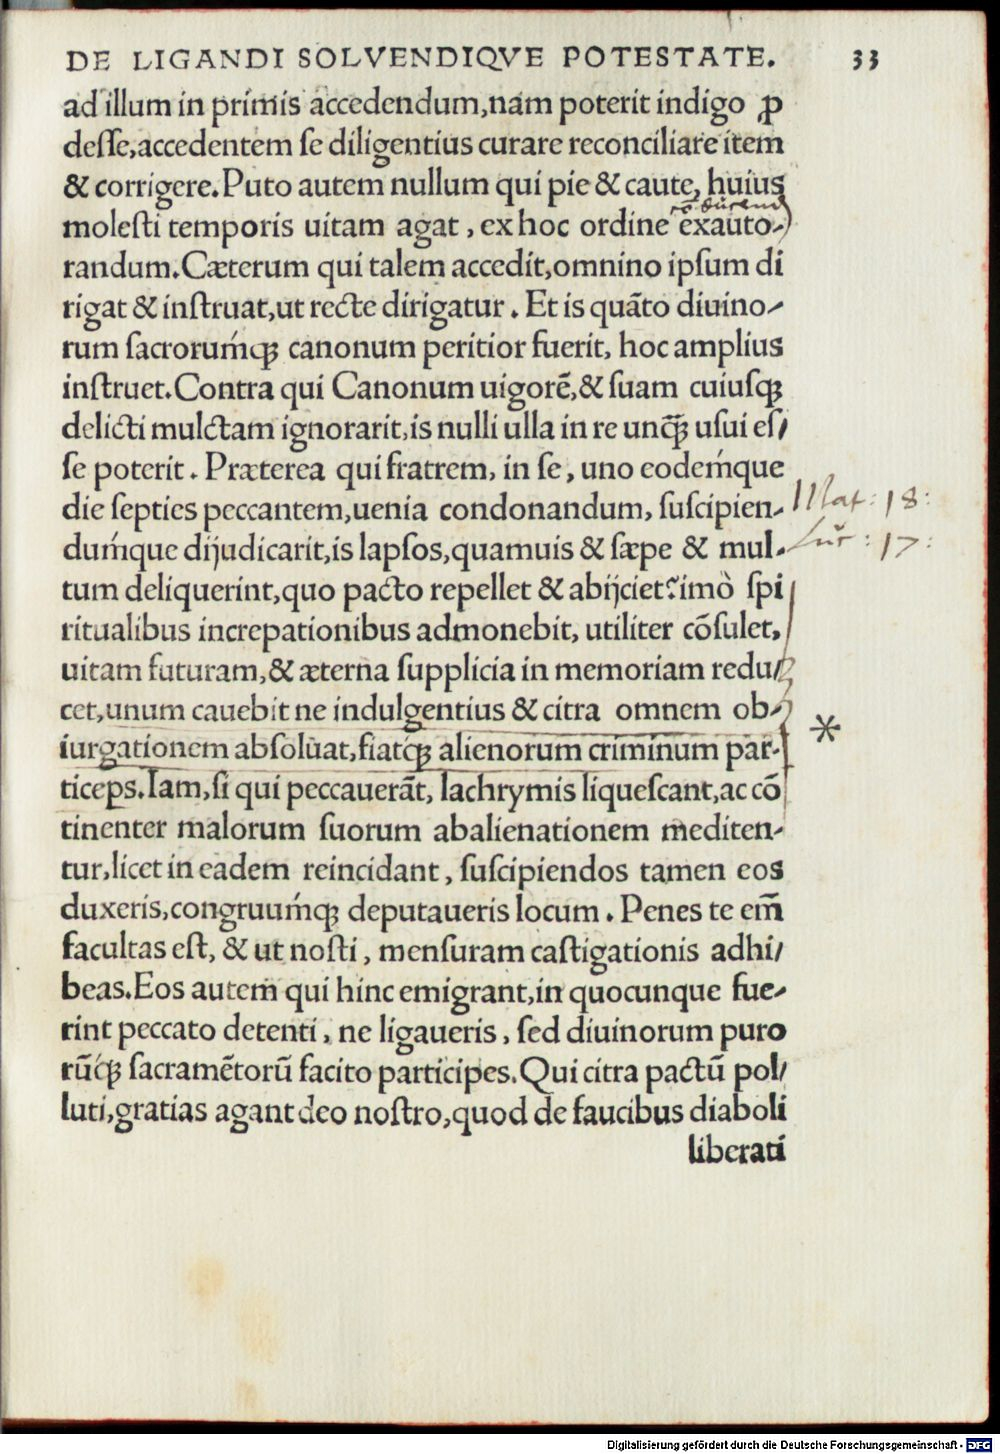 DE LIGANDI SOLVENDIQVE POTESTATE. 33
ad illum in primis accedendum,nam poterit indigo ꝓ
desse,accedentem se diligentius curare reconciliare item
& corrigere.Puto autem nullum qui pie & caute, huius
molesti temporis uitam agat , ex hoc ordine exauto-
randum.Cæterum qui talem accedit,omnino ipsum di
rigat & instruat,ut recte dirigatur . Et is quāto diuino-
rum sacrorumq́ꝫ canonum peritior fuerit, hoc amplius
instruet.Contra qui Canonum uigorē,& suam cuiusqꝫ
delicti mulctam ignorarit,is nulli ulla in re unqꝫ̄ usui es/
se poterit . Præterea qui fratrem, in se , uno eodemq́ue
die septies peccantem,uenia condonandum, suscipien-
dumq́ue dijudicarit,is lapsos,quamuis & sæpe & mul-
tum deliquerint,quo pacto repellet & abijciet?imò spi
ritualibus increpationibus admonebit, utiliter cōsulet,
uitam futuram,& æterna supplicia in memoriam redu/
cet,unum cauebit ne indulgentius & citra omnem ob-
iurgationem absoluat,fiatq́ꝫ alienorum criminum par-
ticeps.Iam,si qui peccauerāt, lachrymis liquescant,ac cō
tinenter malorum suorum abalienationem mediten-
tur,licet in eadem reincidant , suscipiendos tamen eos
duxeris,congruumq́ꝫ deputaueris locum . Penes te em̄
facultas est, & ut nosti , mensuram castigationis adhi/
beas.Eos autem qui hinc emigrant,in quocunque fue-
rint peccato detenti , ne ligaueris , sed diuinorum puro
rūq́ꝫ sacramētorū facito participes.Qui citra pactū pol/
luti,gratias agant deo nostro,quod de faucibus diaboli
liberati
Mat: 18:
Luc: 17:
*
Digitalisierung gefördert durch die Deutsche Forschungsgemeinschaft - DFG